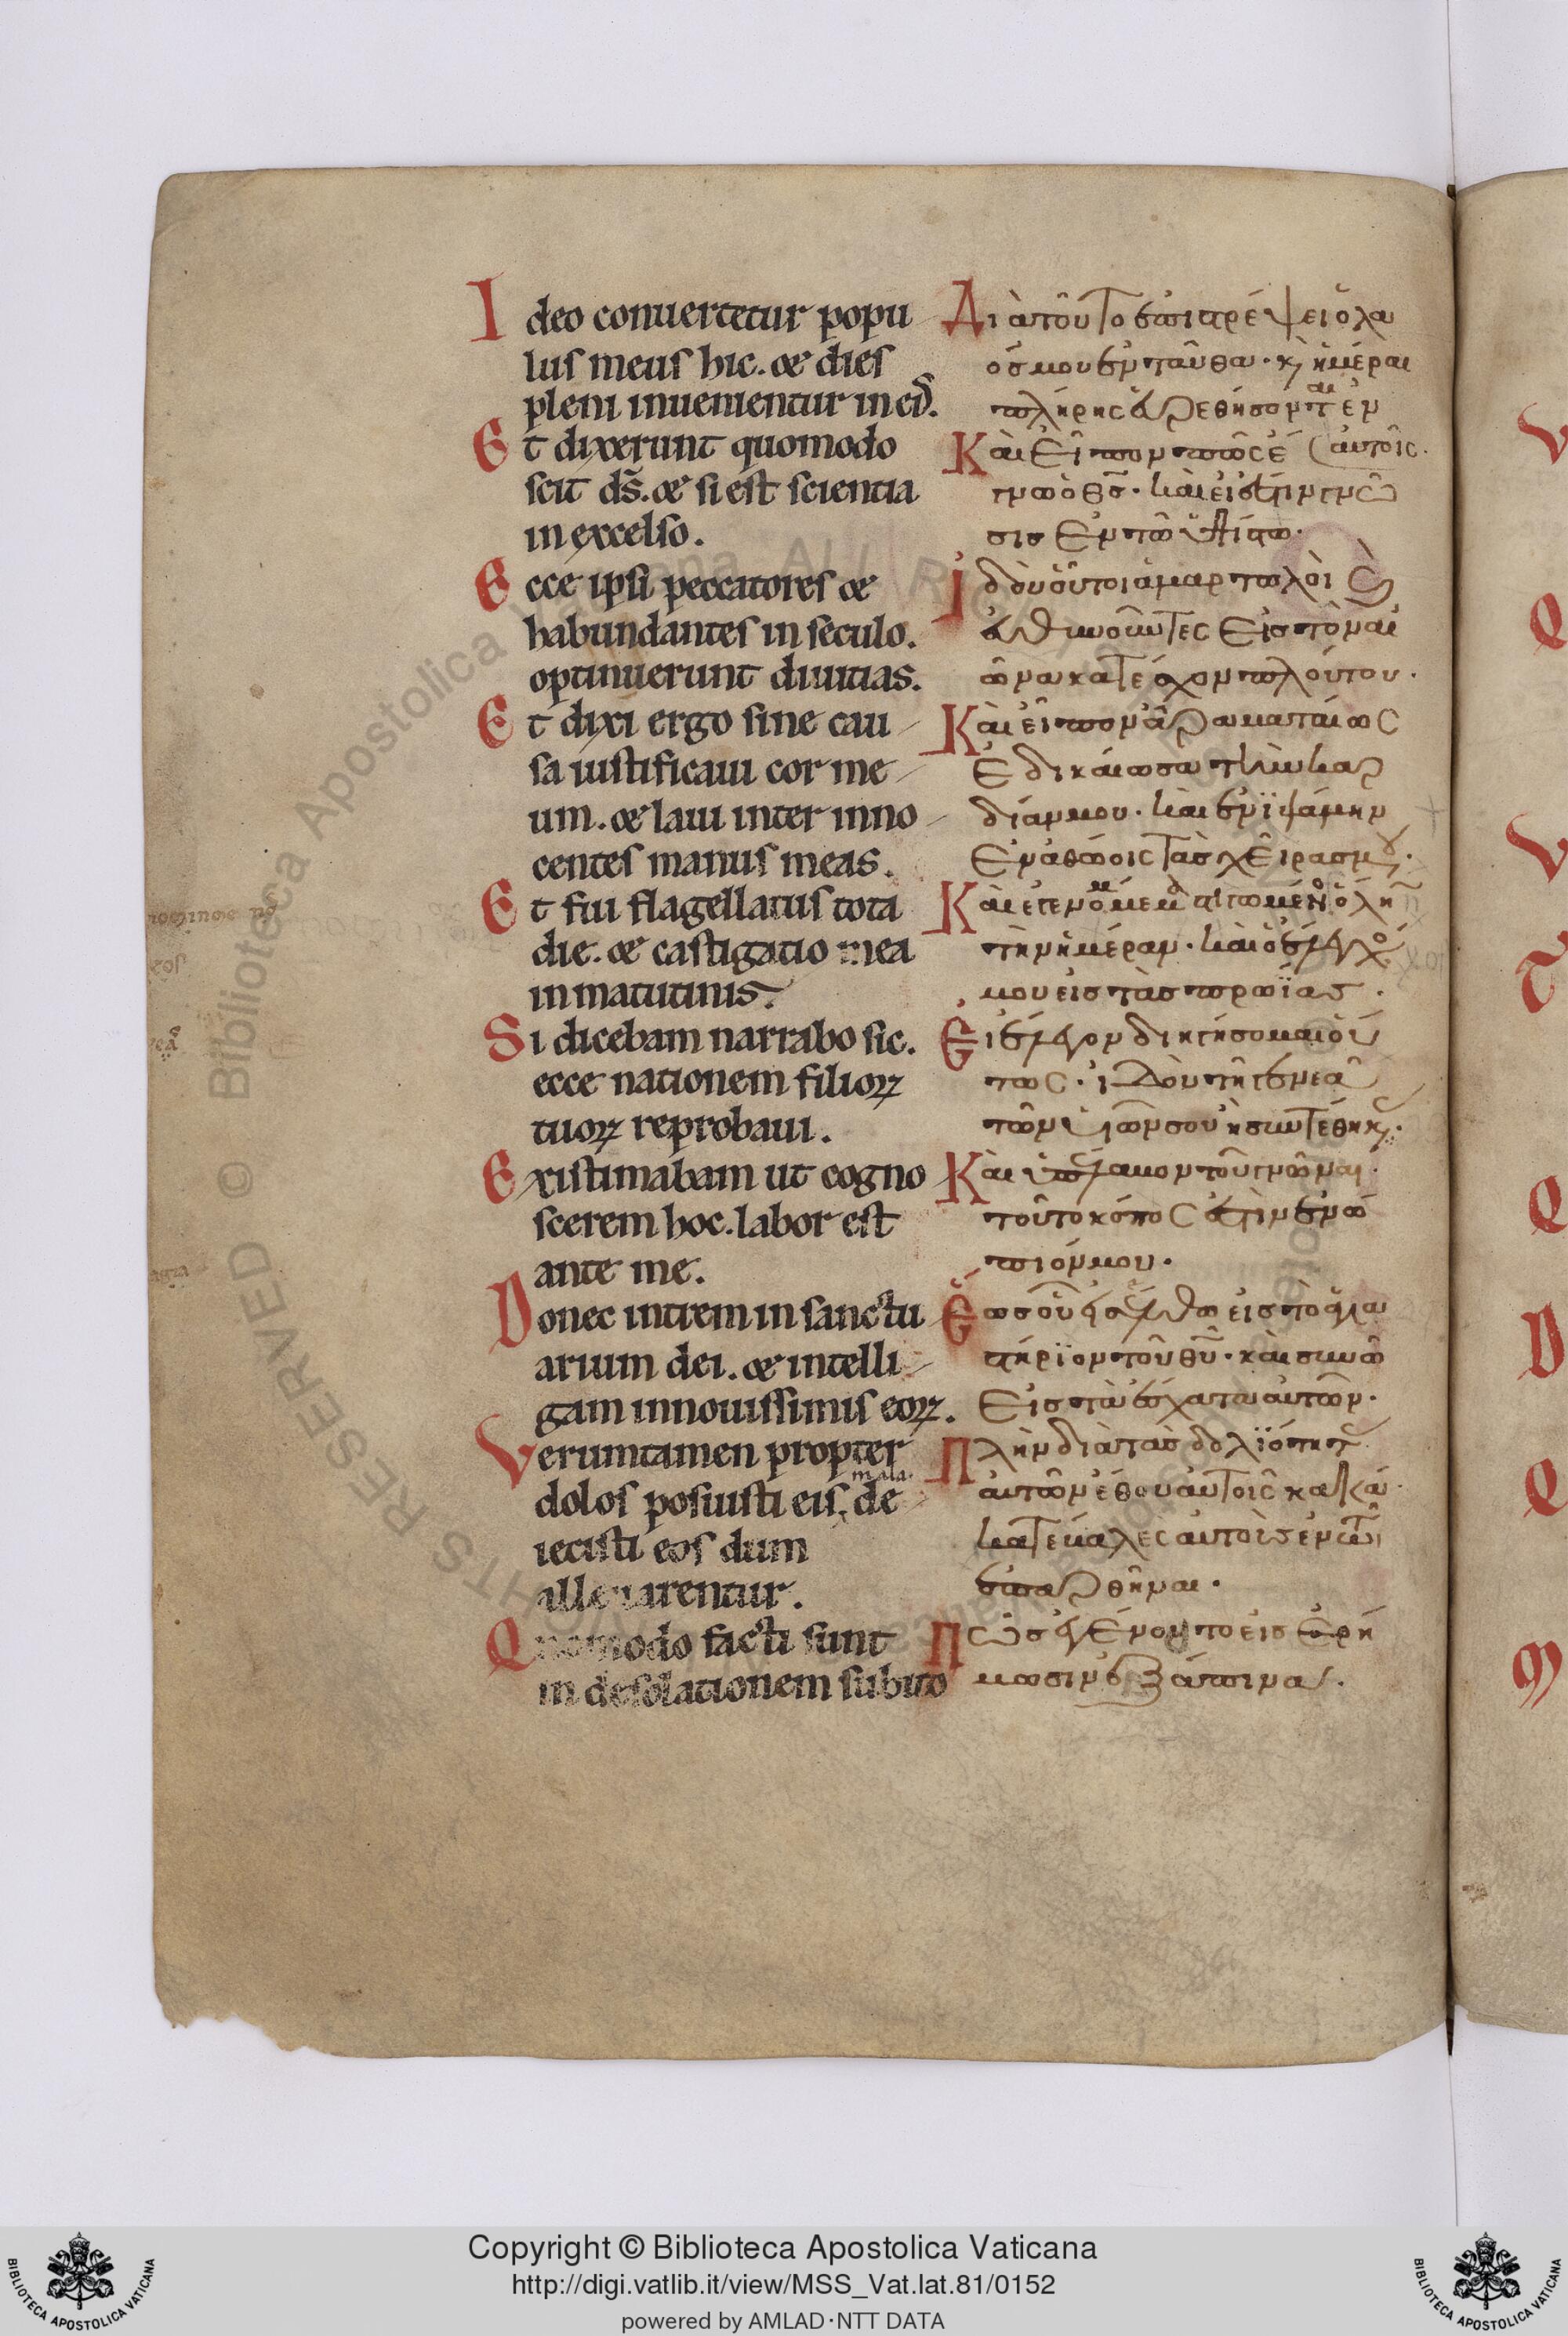 Ideo conuertetur popu
lus meus hic. & dies
pleni inuenientur in eis̄.
Et dixerunt quomodo
scit d̄s. & si est scientia
in excelso.
Ecce ipsi peccatores &
habundantes in seculo.
optinuerunt diuitias.
Et dixi ergo sine cau
sa iustificaui cor me
um. & laui inter inno
centes manus meas.
Et fui flagellatus tota
die. & castigatio mea
in matutinis.
Si dicebam narrabo sic.
ecce nationem filioꝝ
tuoꝝ reprobaui.
Existimabam ut cogno
scerem hoc. labor est
ante me.
Donec intrem in sanctu
arium dei. & intelli
gam in nouissimis eoꝝ.
Verumtamen propter
dolos posuisti eis, mala. de
iecisti eos dum
alleuarentur.
Quomodo facti sunt
in desolationem subito
Διὰ τοῦτο ἐπιστρέψει ὁ λα
όσ μου ἐνταῦθα. κ̀ ἡμέραι
πλήρης εὑρεθήσονται ἐν
αὐτοῖς.
Καὶ εἶπον πῶς ἔ
γνω ὁ θσ̄. καὶ εἰ ἔστιν γνῶ
σισ ἐν τῶ ὑψίστω.
Ἰδοὺ οὗτοι ἁμαρτωλοὶ κ̀
εὐθηνοῦντες εἰσ τὸν αἰ
ῶνα κατέσχον πλούτου.
Καὶ εἶπον ἄρα ματαίως
ἐδικαίωσα τὴν καρ
δίαν μου. καὶ ἐνϊψάμην
ἐν ἀθώοις τὰσ χεῖρασ μου.
Καὶ ἐγενόμην μεμαστιγωμένος ὅλην
τὴν ἡμέραν. καὶ ὁ ἔλεγχος
μου εἰσ τὰσ πρωΐασ.
Εἰ ἔλεγον διηγήσομαι οὕ
τως. ἰδοὺ τῆ γενεᾶ
τῶν υἱῶν σου ἡσυντέθηκ.
Καὶ ὑπέλαβον τοῦ γνῶναι.
τοῦτο κόπος ἐστὶν ἐνώ
πιόν μου.
Ἕωσ οὗ εἰσέλθω εἰσ τὸ ἁγια
στήρϊον τοῦ θῡ. καὶ συνῶ
εἰσ τὰ ἔσχατα αὐτῶν.
Πλὴν διὰ τὰσ δολϊότητ
αὐτῶν ἔθου αὐτοῖς κακά.
κατέβαλες αὐτοὺσ ἐν τῶ
ἐπαρθῆναι.
Πῶσ ἐγένοντο εἰσ ἐρή
μωσιν ἐξάπινα.
Copyright © Biblioteca Apostolica Vaticana
http://digi.vatlib.it/view/MSS_Vat.lat.81/0152
powered by AMLAD·NTT DATA